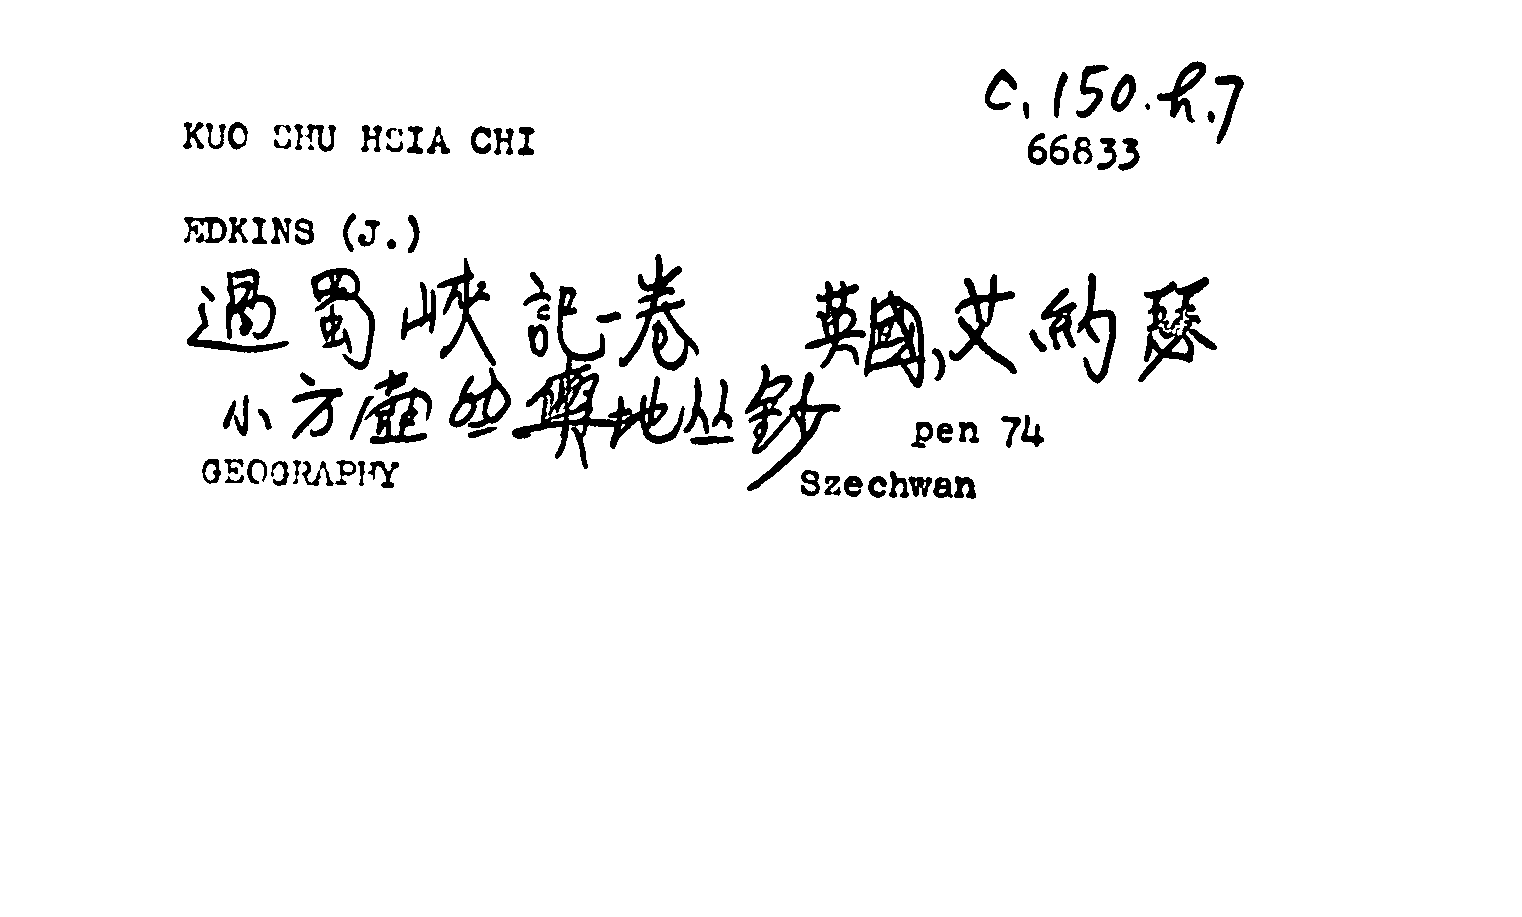 C.150.h.7
KUO SHU HSIA CHI
66833
EDKINS (J.)
過蜀峽記一卷 英國,艾約瑟
小方壺齋輿地丛鈔 pen 74
GEOGRAPHY Szechwan